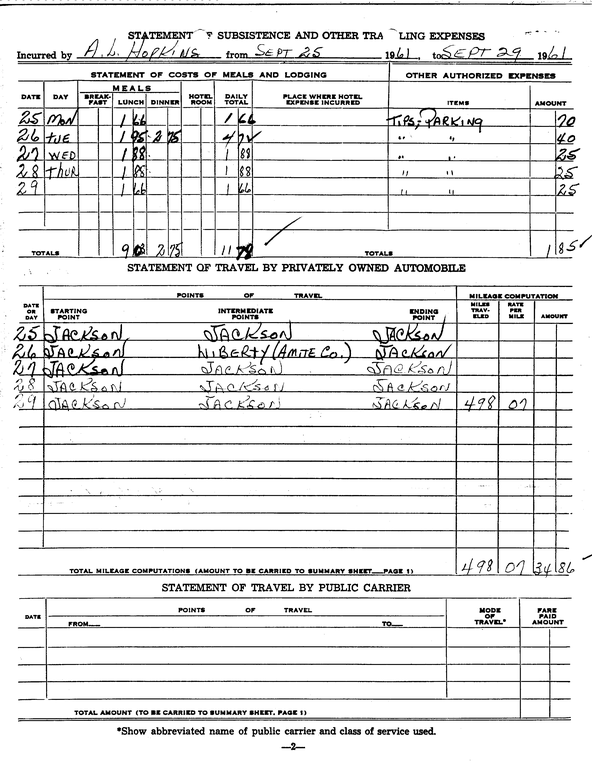 STATEMENT SUBSISTENCE AND OTHER TRA LING EXPENSES
Incurred by A.L. HOPKINS from SEPT 25 1961, to SEPT 29 1961
STATEMENT OF COSTS OF MEALS AND LODGING OTHER AUTHORIZED EXPENSES
DATE DAY MEALS BREAK-FAST LUNCH DINNER HOTEL ROOM DAILY TOTAL PLACE WHERE HOTEL EXPENSE INCURRED ITEMS AMOUNT
25 MON 1 66 1 66 TIPS, PARKING 70
26 TUE 1 95 2 75 4 70 " " 40
27 WED 1 88 1 88 " " 25
28 THUR 1 88 1 88 " " 25
29 1 66 1 66 " " 25
TOTALS 9 03 2 75 11 78 TOTALS 1 85
STATEMENT OF TRAVEL BY PRIVATELY OWNED AUTOMOBILE
DATE OR DAY POINTS OF TRAVEL MILEAGE COMPUTATION
STARTING POINT INTERMEDIATE POINTS ENDING POINT MILES TRAV-ELED RATE PER MILE AMOUNT
25 JACKSON JACKSON JACKSON
26 JACKSON LIBERTY (AMITE CO.) JACKSON
27 JACKSON JACKSON JACKSON
28 JACKSON JACKSON JACKSON
29 JACKSON JACKSON JACKSON 498 07
TOTAL MILEAGE COMPUTATIONS (AMOUNT TO BE CARRIED TO SUMMARY SHEET—PAGE 1) 498 07 34 86
STATEMENT OF TRAVEL BY PUBLIC CARRIER
DATE POINTS OF TRAVEL MODE OF TRAVEL* FARE PAID AMOUNT
FROM— TO—
TOTAL AMOUNT (TO BE CARRIED TO SUMMARY SHEET, PAGE 1)
*Show abbreviated name of public carrier and class of service used.
—2—